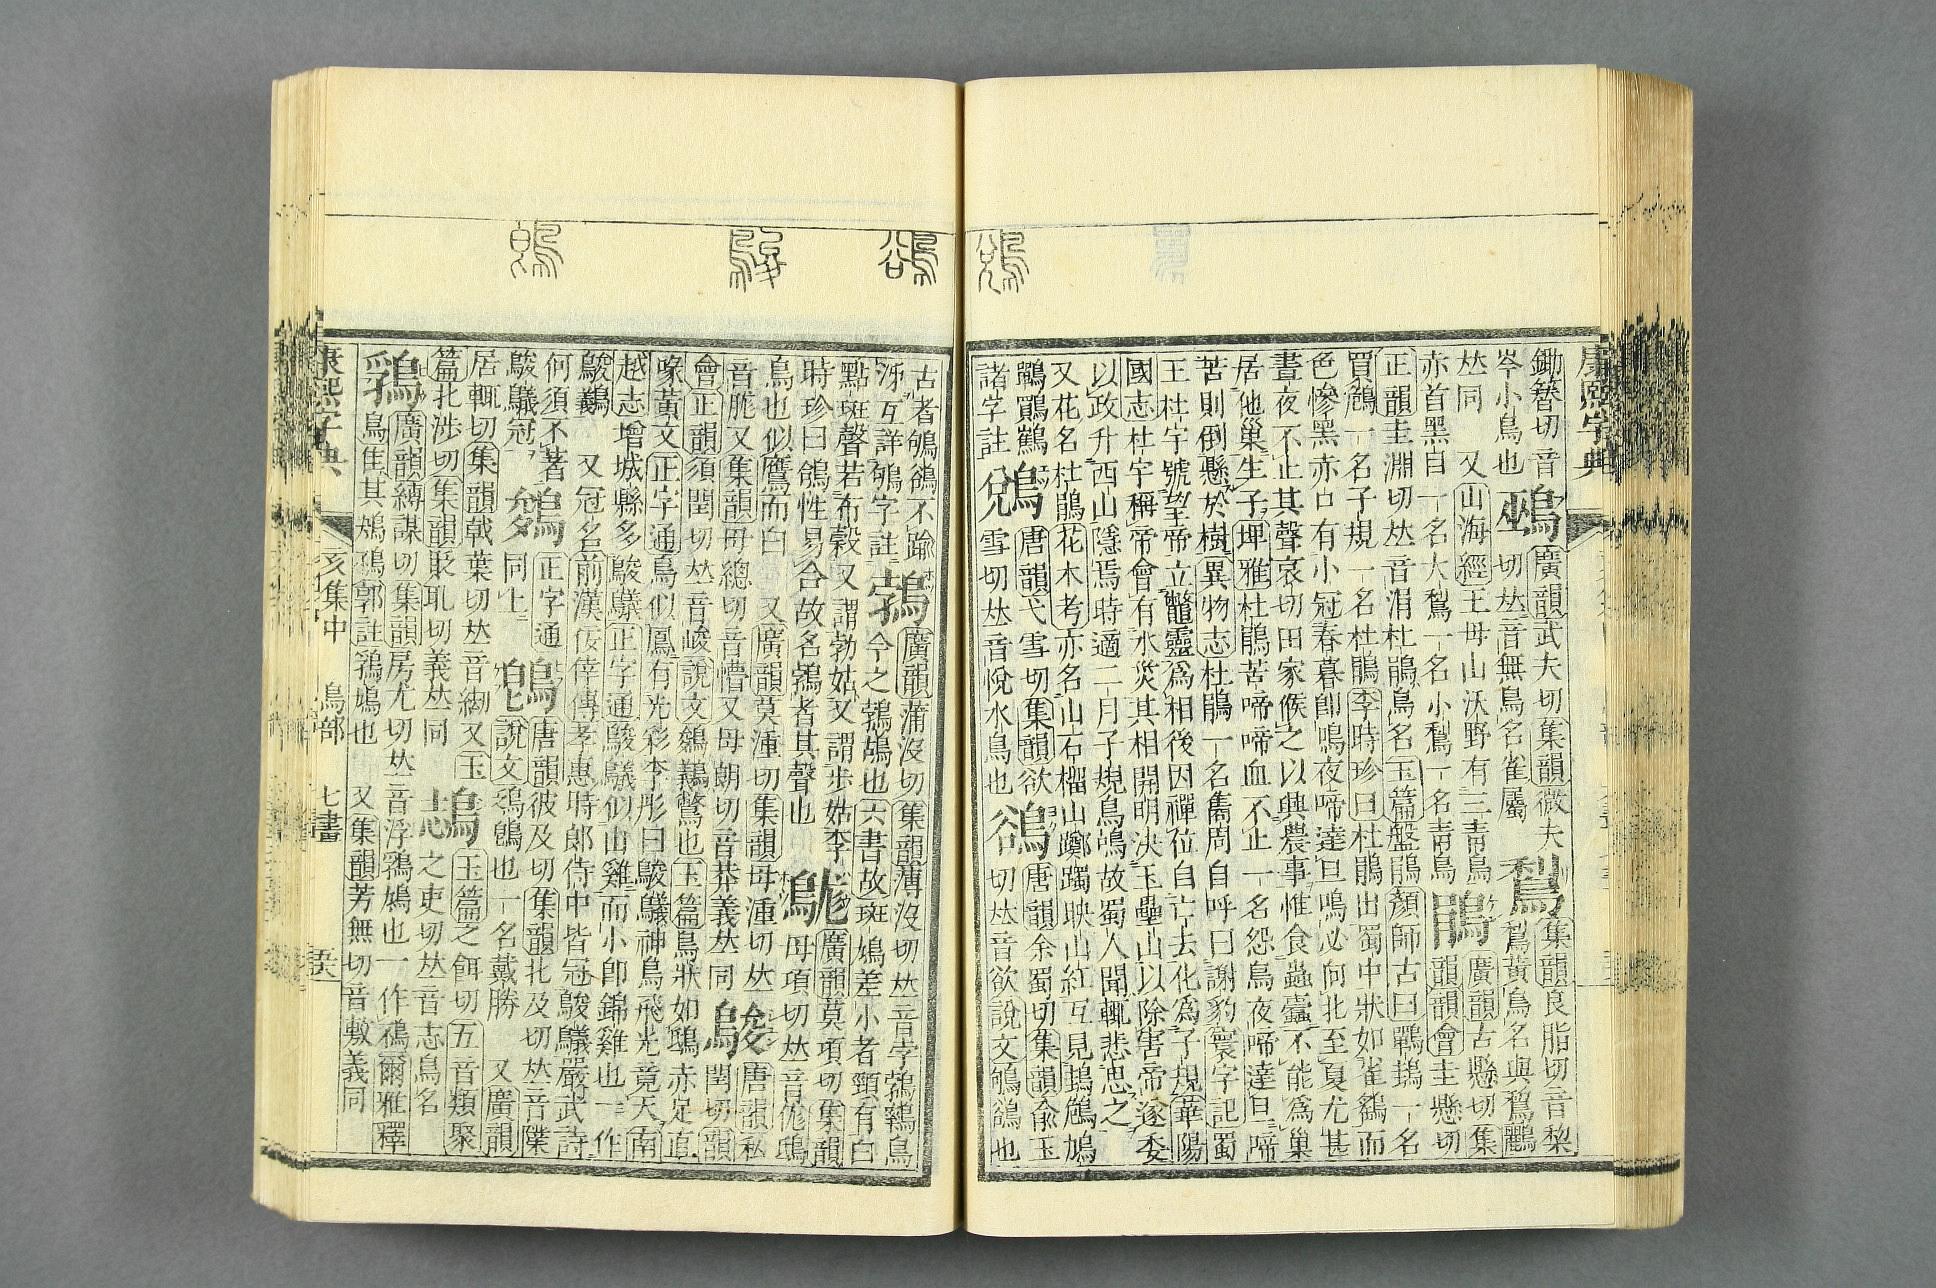 康熙字典
鋤簪切音
岑小鳥也 鵐 廣韻武夫切集韻微夫
切𠀤音無鳥名雀屬 鵹 集韻良脂切音犂
𠀤同 又山海經王母山沃野有三靑鳥
鵹黃鳥名與鵹鸝
赤首黑目一名大鵹一名小鵹一名靑鳥 鵑 廣韻古懸切集
韻韻會圭懸切
正韻圭淵切𠀤音涓杜鵑鳥名玉篇盤鵑顏師古曰鷤鴂一名
買𪇆一名子規一名杜鵑李時珍曰杜鵑出蜀中狀如雀鷂而
色慘黑赤口有小冠春暮卽鳴夜啼達旦鳴必向北至夏尤甚
晝夜不止其聲哀切田家候之以興農事惟食蟲蠹不能爲巢
居他巢生子埤雅杜鵑苦啼啼血不止一名怨鳥夜啼達旦啼
苦則倒懸於樹異物志杜鵑一名雋周自呼曰謝豹寰宇記蜀
王杜宇號望帝立鼈靈爲相後因禪位自亡去化爲子規華陽
國志杜宇稱帝會有水災其相開明決玉壘山以除害帝遂委
以政升西山隱焉時適二月子規鳥鳴故蜀人聞輒悲思之
又花名杜鵑花木考亦名山石榴山躑躅映山紅互見鴂鷈鳩
鸜鷶鸖 鵎 唐韻弋雪切集韻欲
諸字註
雪切𠀤音悅水鳥也 鵒 唐韻余蜀切集韻兪玉
切𠀤音欲說文鴝鵒也
古者鴝鵒不踰
泲互詳鴝字註 鵓 廣韻蒲沒切集韻薄沒切𠀤音孛鵓鷄鳥
今之鵓鴣也六書故斑鳩差小者頸有白
點斑聲若布穀又謂勃姑又謂步姑李
時珍曰鴿性易合故名鵓者其聲也
廣韻莫項切集韻
母項切𠀤音㑻鳥
鳥也似鷹而白 又廣韻莫湩切集韻母湩切𠀤
音䏵又集韻母總切音懵又母朗切音莽義𠀤同 鵔 唐韻私
閏切韻
會正韻須閏切𠀤音峻說文鵔鸃鷩也玉篇鳥狀如鴟赤足直
喙黃文正字通鳥似鳳有光彩李彤曰鵔鸃神鳥飛光竟天南
越志增城縣多鵔鸃正字通鵔鸃似山雞而小卽錦雞也一作
鵔鵜 又冠名前漢佞倖傳孝惠時郞侍中皆冠鵔鸃嚴武詩
何須不著
鵔鸃冠 正字通
同上 鵖 唐韻彼及切集韻北及切𠀤音𨻶
說文鴔鵖也一名戴勝 又廣韻
居輒切集韻戟葉切𠀤音紻又玉
篇北涉切集韻貶耴切義𠀤同 鵋 玉篇之餌切五音類聚
之吏切𠀤音志鳥名
鵗 廣韻縛謀切集韻房尤切𠀤音浮鵗鳩也一作鴀爾雅釋
鳥隹其鳺鴀郭註鵗鳩也 又集韻芳無切音敷義同
康熙字典
亥集中 鳥部 七畫